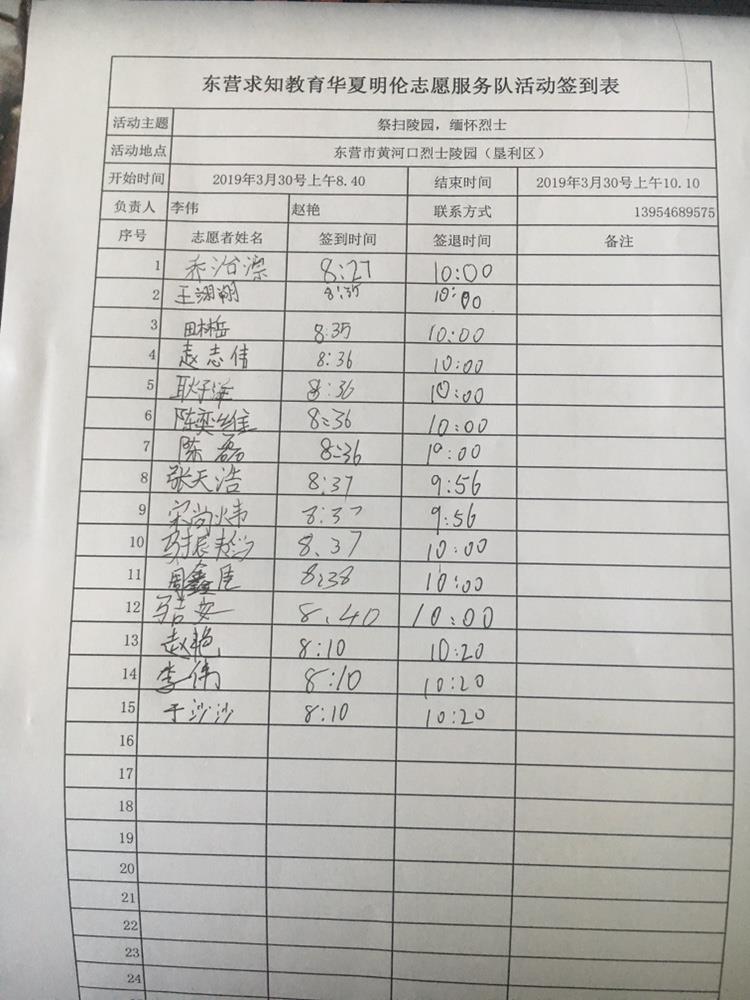 东营求知教育华夏明伦志愿服务队活动签到表
活动主题 祭扫陵园，缅怀烈士
活动地点 东营市黄河口烈士陵园（垦利区）
开始时间 2019年3月30号上午8.40 结束时间 2019年3月30号上午10.10
负责人 李伟 赵艳 联系方式 13954689575
序号 志愿者姓名 签到时间 签退时间 备注
1 乔治漂 8:27 10:00
2 王翊翔 8:35 10:00
3 田林岳 8:35 10:00
4 赵志伟 8:36 10:00
5 耿子洋 8:36 10:00
6 陈奕维 8:36 10:00
7 陈磊 8:36 10:00
8 张天浩 8:37 9:56
9 宋尚炜 8:37 9:56
10 马振 8.37 10:00
11 周鑫臣 8:38 10:00
12 马吉安 8.40 10:00
13 赵艳 8:10 10:20
14 李伟 8:10 10:20
15 于沙沙 8:10 10:20
16
17
18
19
20
21
22
23
24